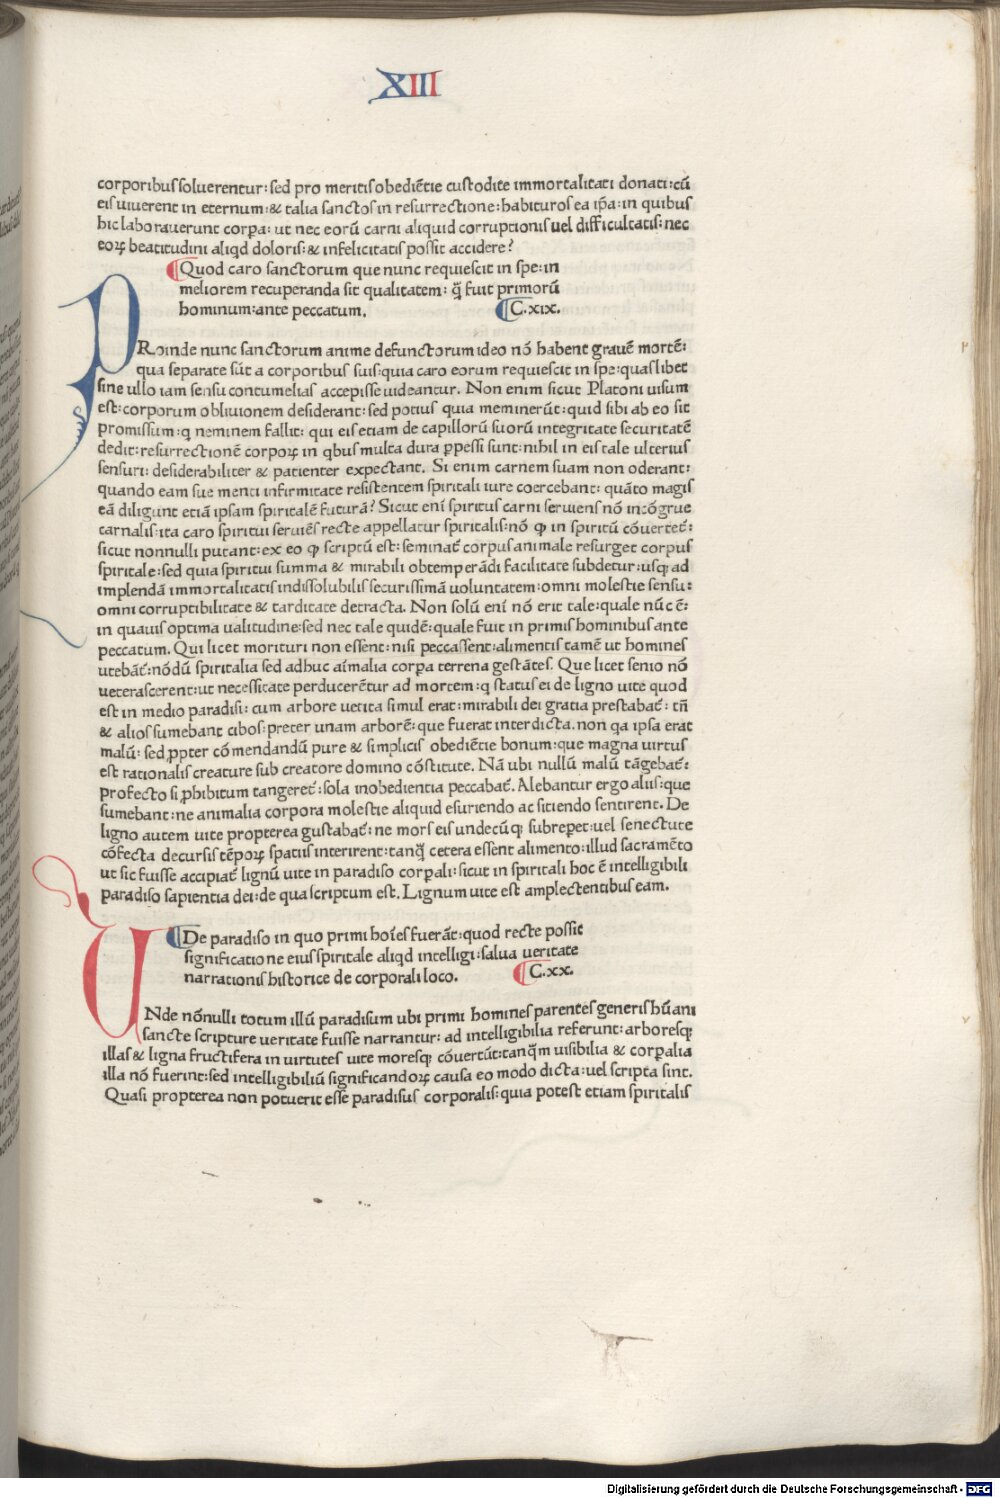 XIII
corporibus soluerentur: sed pro meritis obediētie custodite immortalitati donati: cū
eis uiuerent in eternum: & talia sanctos in resurrectione: habituros ea ip̄a: in quibus
hic laborauerunt corpa: ut nec eorū carni aliquid corruptionis uel difficultatis: nec
eoꝝ beatitudini aliqd doloris: & infelicitatis possit accidere?
¶Quod caro sanctorum que nunc requiescit in spe: in
meliorem recuperanda sit qualitatem: q̄ fuit primorū
hominum: ante peccatum. ¶C.xix.
PRoinde nunc sanctorum anime defunctorum ideo nō habent grauē mortē:
qua separate sūt a corporibus suis: quia caro eorum requiescit in spe: quaslibet
sine ullo iam sensu contumelias accepisse uideantur. Non enim sicut Platoni uisum
est: corporum obliuionem desiderant: sed potius quia meminerūt: quid sibi ab eo sit
promissum: q neminem fallit: qui eis etiam de capillorū suorū integritate securitatē
dedit: resurrectionē corpoꝝ in qbus multa dura ꝑpessi sunt: nihil in eis tale ulterius
sensuri: desiderabiliter & patienter expectant. Si enim carnem suam non oderant:
quando eam sue menti infirmitate resistentem spiritali iure coercebant: quāto magis
eā diligunt etiā ipsam spiritalē futurā? Sicut eni spiritus carni seruiens nō incōgrue
carnalis: ita caro spiritui seruiēs recte appellatur spiritalis: nō ꝙ in spiritū cōuertet̄:
sicut nonnulli putant: ex eo ꝙ scriptū est: seminat̄ corpus animale resurget corpus
spiritale: sed quia spiritui summa & mirabili obtemperādi facilitate subdetur: usq; ad
implendā immortalitatis indissolubilis securissimā uoluntatem: omni molestie sensu:
omni corruptibilitate & tarditate detracta. Non solū eni nō erit tale: quale nūc ē:
in quauis optima ualitudine: sed nec tale quidē: quale fuit in primis hominibus ante
peccatum. Qui licet morituri non essent: nisi peccassent: alimentis tamē ut homines
utebāt̄: nōdū spiritalia sed adhuc aīmalia corpa terrena gestātes. Que licet senio nō
ueterascerent: ut necessitate perducerētur ad mortem: q status ei de ligno uite quod
est in medio paradisi: cum arbore uetita simul erat: mirabili dei gratia prestabat̄: tn̄
& alios sumebant cibos: preter unam arborē: que fuerat interdicta. non qa ipsa erat
malū: sed ꝓpter cōmendandū pure & simplicis obediētie bonum: que magna uirtus
est rationalis creature sub creatore domino cōstitute. Nā ubi nullū malū tāgebat̄:
profecto si ꝓhibitum tangeret̄: sola inobedientia peccabat̄. Alebantur ergo aliis: que
sumebant: ne animalia corpora molestie aliquid esuriendo ac sitiendo sentirent. De
ligno autem uite propterea gustabāt̄: ne mors eis undecūq; subreperet: uel senectute
cōfecta decursis tēpoꝝ spatiis interirent: tanq̄ cetera essent alimento: illud sacramēto
ut sic fuisse accipiat̄ lignū uite in paradiso corꝑali: sicut in spiritali hoc ē intelligibili
paradiso sapientia dei: de qua scriptum est. Lignum uite est amplectentibus eam.
¶De paradiso in quo primi hoīes fuerāt: quod recte possit
significatione eius spiritale aliqd intelligi: salua ueritate
narrationis historice de corporali loco. ¶C.xx.
UNde nōnulli totum illū paradisum ubi primi homines parentes generis hūani
sancte scripture ueritate fuisse narrantur: ad intelligibilia referunt: arboresq;
illas & ligna fructifera in uirtutes uite moresq; cōuertūt: tanq̄m uisibilia & corꝑalia
illa nō fuerint: sed intelligibiliū significandoꝝ causa eo modo dicta: uel scripta sint.
Quasi propterea non potuerit esse paradisus corporalis: quia potest etiam spiritalis
Digitalisierung gefördert durch die Deutsche Forschungsgemeinschaft - DFG